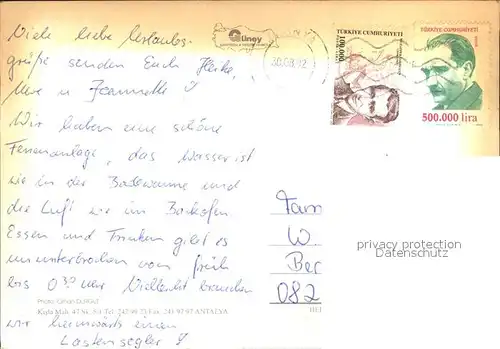 Viele liebe Urlaubs-
grüße senden Euch Heike,
Uwe u Jeannette
Wir haben eine schöne
Ferienanlage, das Wasser ist
wie in der Badewanne und
die Luft wie im Backofen
Essen und Trinken gibt es
ununterbrochen von früh
bis 0 30 Uhr Vielleicht brauchen
wir heimwärts einen
Lastensegler
Güney
30.08. 2
TÜRKİYE CUMHURİYETİ
100.000
TÜRKİYE CUMHURİYETİ
500.000 lira
Fam
W.
Ber
082
privacy protection
Datenschutz
Photo:
Kışla Mah. 47 Sk. 8/4 Tel: 242 48 73 Fax: 241 97 97 ANTALYA